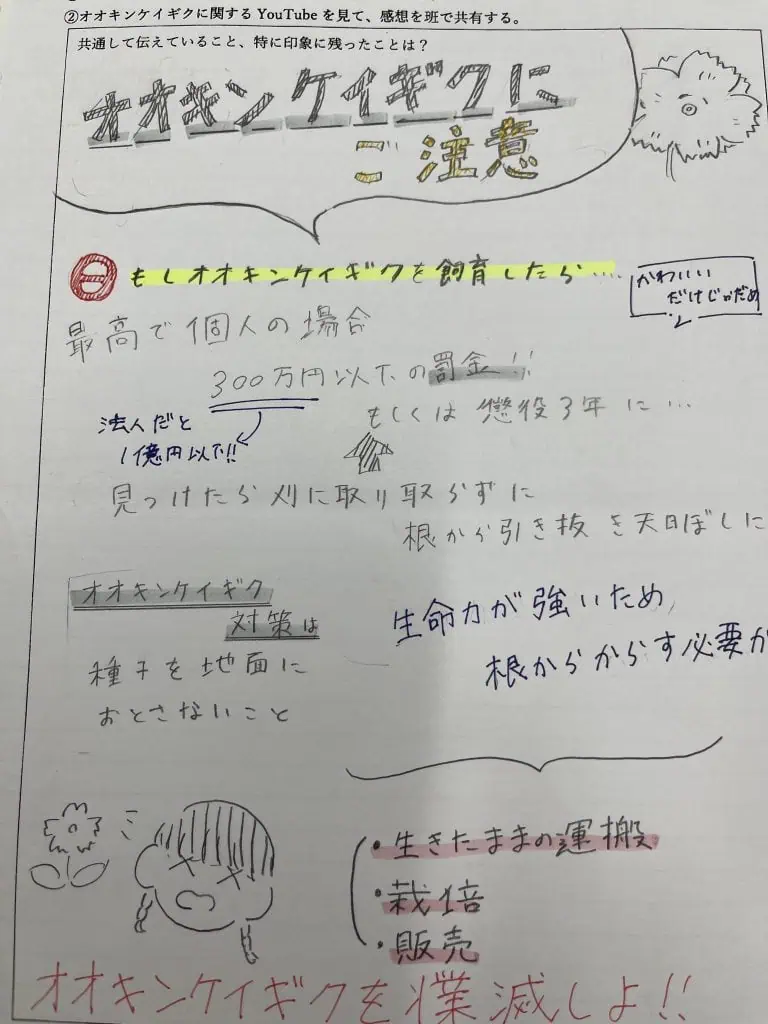 ②オオキンケイギクに関する YouTube を見て、感想を班で共有する。
共通して伝えていること、特に印象に残ったことは？
オオキンケイギクに
ご注意
もしオオキンケイギクを飼育したら….
かわいい
だけじゃだめ
最高で個人の場合
300万円以下の罰金!!
もしくは懲役3年に…
法人だと
1億円以下!!
見つけたら刈に取り取らずに
根から引き抜き天日ぼしに
オオキンケイギク
対策は
種子を地面に
おとさないこと
生命力が強いため,
根からからす必要が
・生きたままの運搬
・栽倍
・販売
オオキンケイギクを滅しよ!!